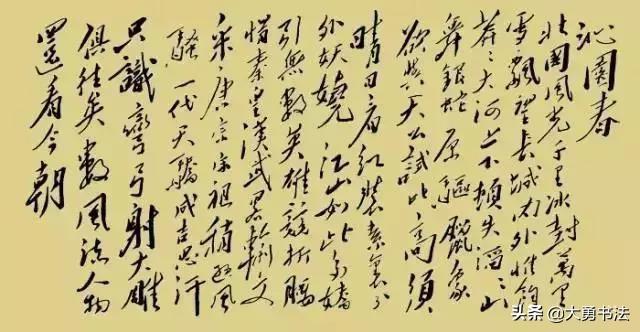 沁園春
北國風光千里冰封萬里
雪飄望長城內外惟餘
莽々大河上下頓失滔々山
舞銀蛇原驅臘象
欲與天公試比高須
晴日看紅裝素裹分
外妖嬈江山如此多嬌
引無數英雄競折腰
惜秦皇漢武略輸文
采唐宗宋祖稍遜風
騷一代天驕成吉思汗
只識彎弓射大雕
俱往矣數風流人物
還看今朝
头条 @大勇书法